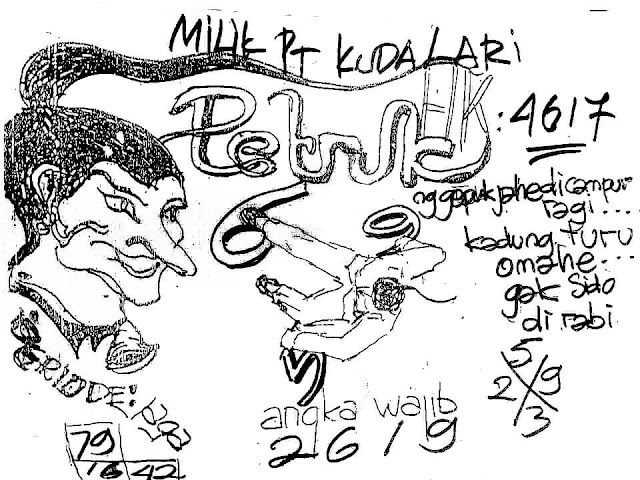 MILIK PT KUDA LARI
Petruk
HK : 4617
nggapuk jahe dicampur
ragi....
kadung turu
omahe...
gak Sido
di rabi
6
9
5
5
2 9
3
PERIODE:
angka wajib
2 6 1 9
79
16 42